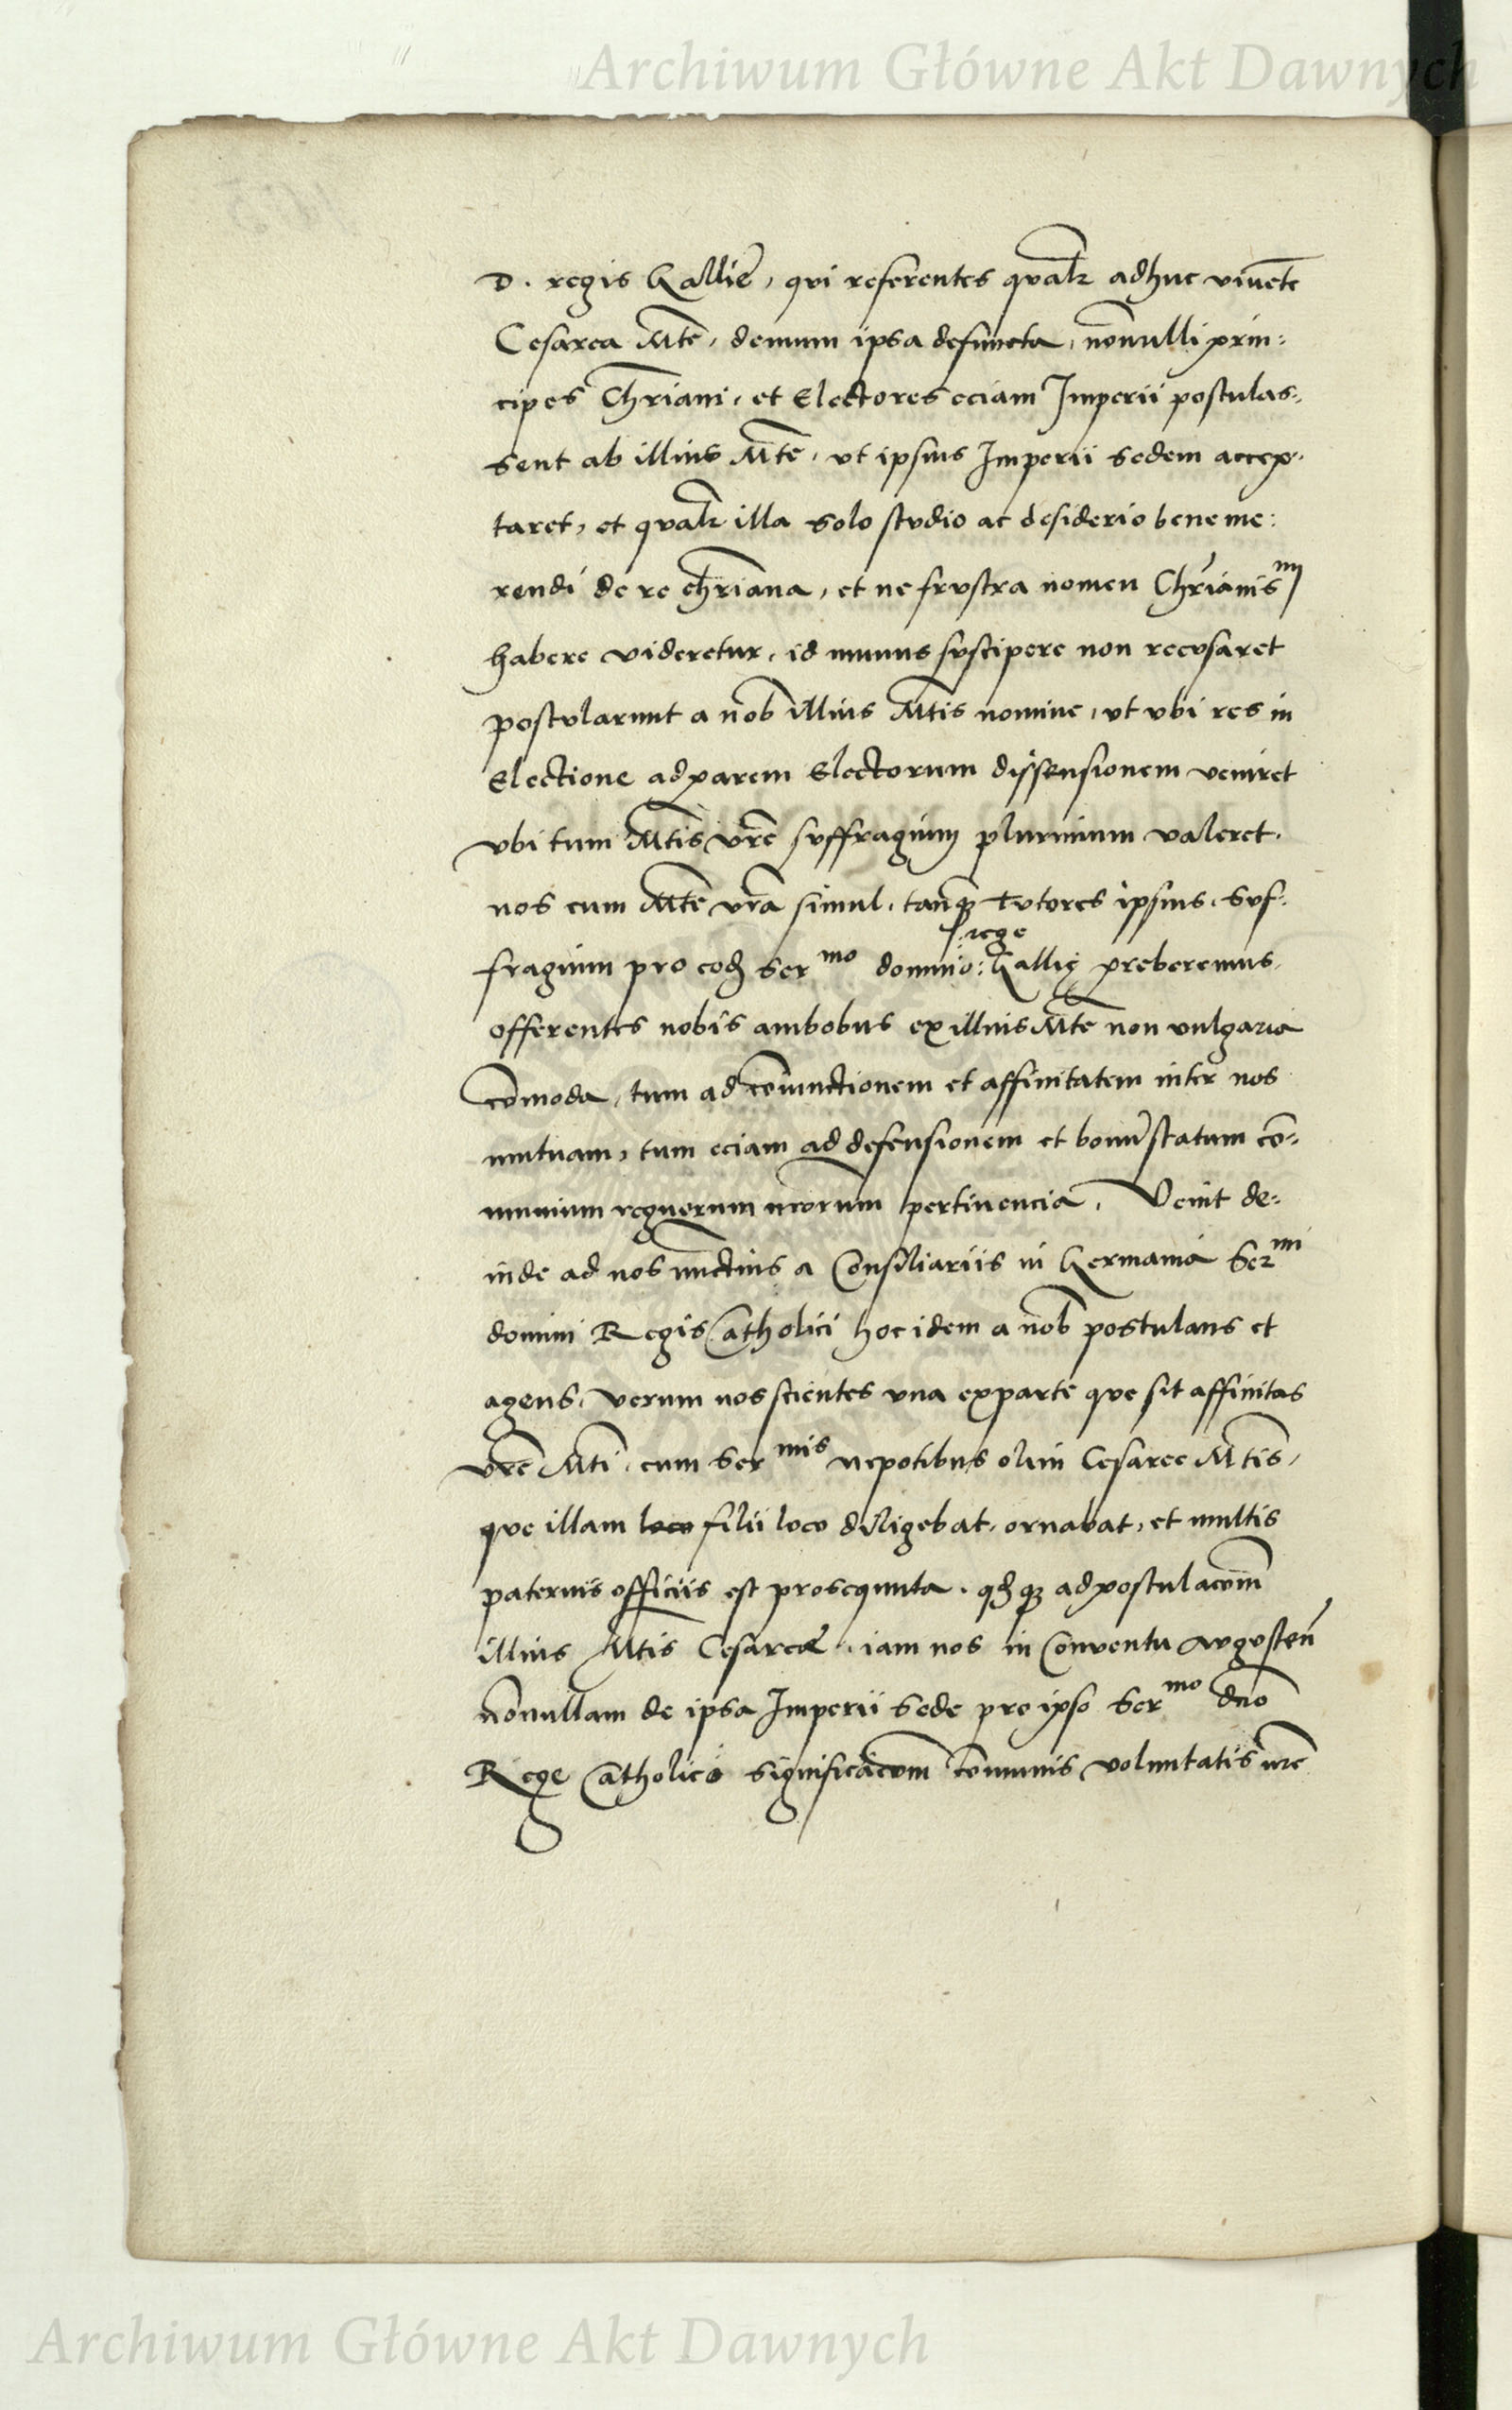 Archiwum Główne Akt Dawnych
D. regis Gallie, qvi referentes qvalr adhuc viuete
Cesarea Mte, demum ipsa defuncta, nonulli prin:
cipes Chriani, et Electores eciam Imperii postulas:
sent ab illius Mte, vt ipsius Imperii sedem accep:
taret, et qvalr illa solo stvdio ac desiderio bene me:
rendi de re chriana, et ne frvstra nomen Chrianismi
habere videretur, id munus svscipere non recvsaret
postvlarunt a nob illius Mtis nomine, vt vbi res in
Electione ad parem Electorum dissensionem veniret
vbi tum Mtis vre svffragium plurimum valeret,
nos cum Mte vra simul, tanq tvtores ipsius, svf:
rege
fragium pro eod sermo domino: Gallię preberemus,
offerentes nobis ambobus ex illius Mte non vulgaria
comoda, tum ad coniunctionem et affinitatem inter nos
mutuam, tum eciam ad defensionem et bonu statum co:
munium regnorum nrorum pertinencia. Venit de:
inde ad nos nuctius a Consiliariis in Germania Sermi
domini Regis Catholici hoc idem a nob postulans et
agens, verum nos scientes vna ex parte que sit affinitas
vre Mti, cum sermis nepotibus olim Cesaree Mtis,
qve illam loco filii loco diligebat, ornabat, et multis
paternis officiis est prosequuta, qd q ad postulacom
illius Mtis Cesaree, iam nos in Conventu Avgvsten
nonullam de ipsa Imperii sede pro ipso Sermo dno
Rege Catholico significacom comunis voluntatis nre
Archiwum Główne Akt Dawnych